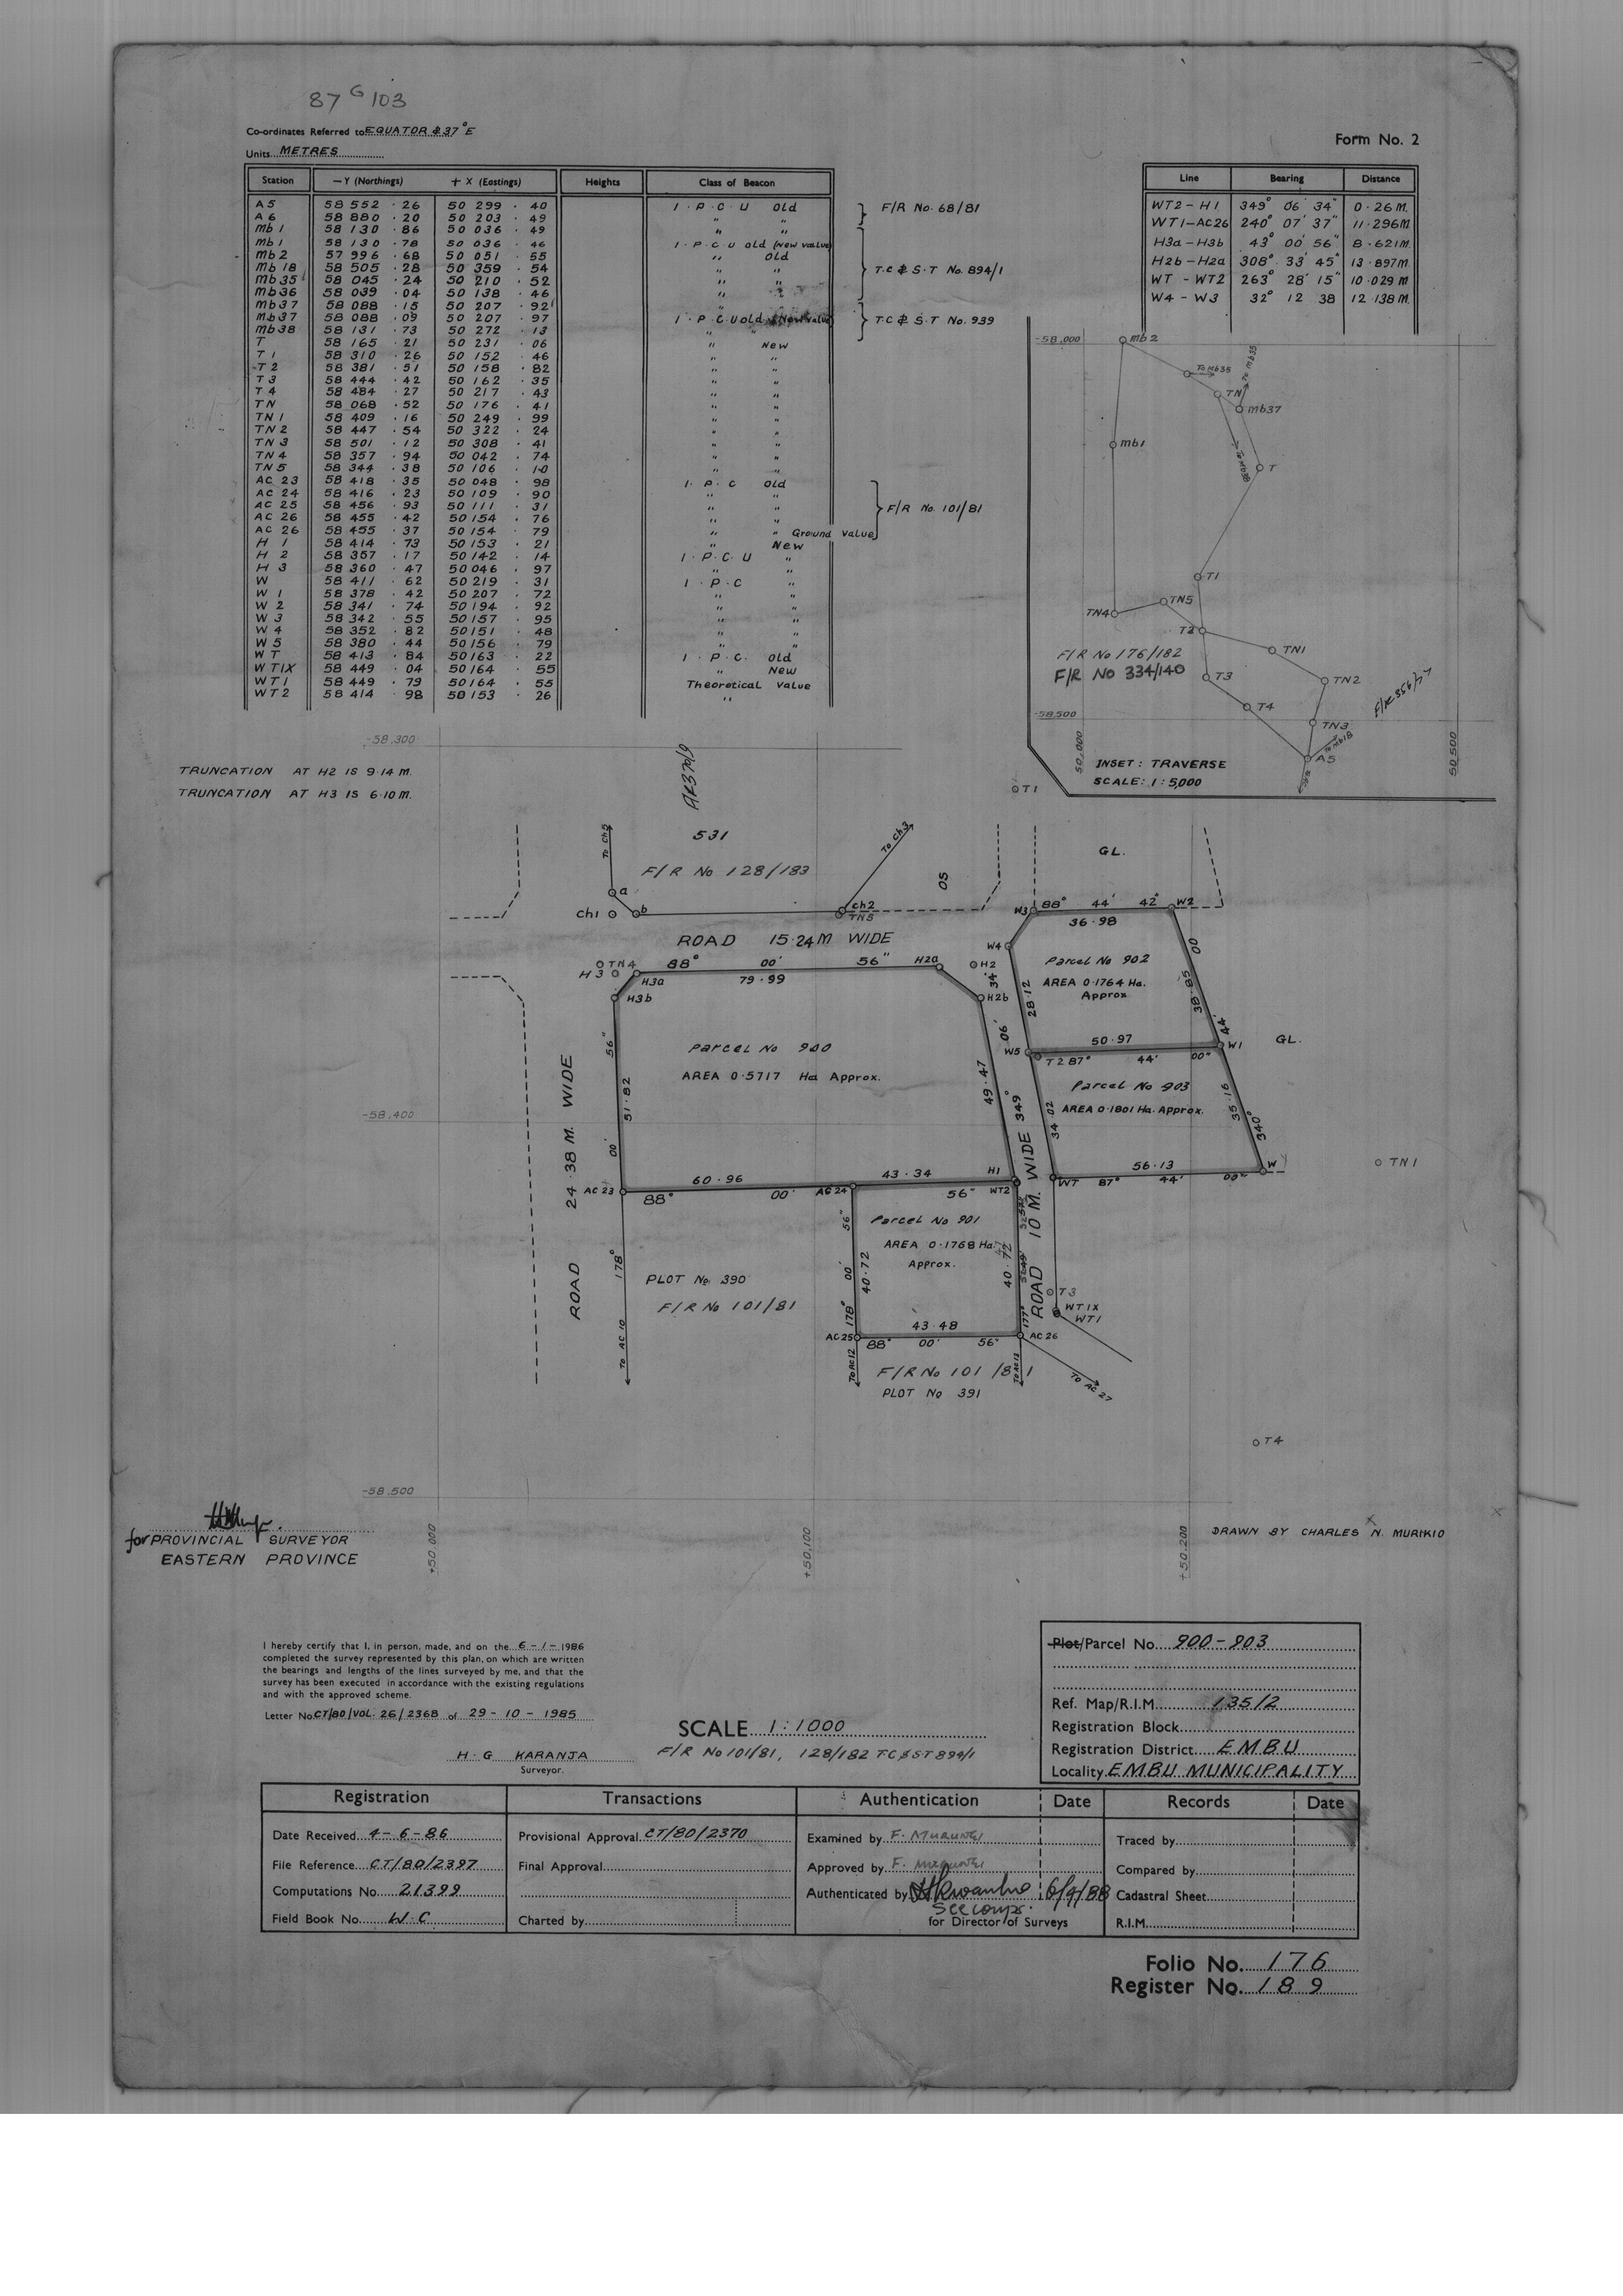 87 G 103
Co-ordinates Referred to EQUATOR & 37°E
Units METRES
Form No. 2
Station — Y (Northings) + X (Eastings) Heights Class of Beacon
A5 58 552 · 26 50 299 · 40 I · P · C · U Old
A6 58 880 · 20 50 203 · 49 " "
F/R No. 68/81
mb 1 58 130 · 86 50 036 · 49 " "
mb 1 58 130 · 78 50 036 · 46 I · P · C · U Old (New value)
mb 2 57 996 · 68 50 051 · 55 " Old
mb 18 58 505 · 28 50 359 · 54 " "
mb 35 58 045 · 24 50 210 · 52 " "
mb 36 58 039 · 04 50 138 · 46 "
T.C & S.T No. 894/1
mb37 58 088 · 15 50 207 · 92 "
mb37 58 088 · 09 50 207 · 97 I · P · C · U old (New value)
mb38 58 131 · 73 50 272 · 13 " "
T.C & S.T No. 939
T 58 165 · 21 50 231 · 06 " New
T 1 58 310 · 26 50 152 · 46 " "
T 2 58 381 · 51 50 158 · 82 " "
T 3 58 444 · 42 50 162 · 35 " "
T 4 58 484 · 27 50 217 · 43 " "
TN 58 068 · 52 50 176 · 41 " "
TN 1 58 409 · 16 50 249 · 99 " "
TN 2 58 447 · 54 50 322 · 24 " "
TN 3 58 501 · 12 50 308 · 41 " "
TN 4 58 357 · 94 50 042 · 74 " "
TN 5 58 344 · 38 50 106 · 10 " "
AC 23 58 418 · 35 50 048 · 98 I · P · C Old
AC 24 58 416 · 23 50 109 · 90 " "
AC 25 58 456 · 93 50 111 · 31 " "
AC 26 58 455 · 42 50 154 · 76 " "
AC 26 58 455 · 37 50 154 · 79 " " Ground value
F/R No. 101/81
H 1 58 414 · 73 50 153 · 21 " New
H 2 58 357 · 17 50 142 · 14 I · P · C · U "
H 3 58 360 · 47 50 046 · 97 " "
W 58 411 · 62 50 219 · 31 I · P · C "
W 1 58 378 · 42 50 207 · 72 " "
W 2 58 341 · 74 50 194 · 92 " "
W 3 58 342 · 55 50 157 · 95 " "
W 4 58 352 · 82 50 151 · 48 " "
W 5 58 380 · 44 50 156 · 79 " "
W T 58 413 · 84 50 163 · 22 I · P · C. Old
W T1X 58 449 · 04 50 164 · 55 " New
W T 1 58 449 · 79 50 164 · 55 Theoretical value
W T 2 58 414 · 98 50 153 · 26 "
Line Bearing Distance
WT2 - H1 349° 06' 34" 0·26 M.
WT1-AC26 240° 07' 37" 11·296M
H3a - H3b 43° 00' 56" 8·621M.
H2b - H2a 308° 33' 45" 13·897M.
WT - WT2 263° 28' 15" 10·029 M
W4 - W3 32° 12 38 12·138 M.
-58,000
mb 2
To Mb36
To mb35
TN
mb37
mb1
T
T1
TN5
TN4
T2
TN1
F/R No 176/182
F/R No 334/140
T3
TN2
T4
-58,500
TN3
To Mb18
A5
50,000
50,500
INSET : TRAVERSE
SCALE : 1 : 5,000
-58,300
TRUNCATION AT H2 IS 9·14 M.
TRUNCATION AT H3 IS 6·10 M.
T 1
531
F/R No 128/183
To Ch3
GL.
OS
a
b
Ch1
Ch2
TN5
W3 88° 44' 42" W2
36·98
ROAD 15·24 M WIDE
W4
TN4
H3
H3a
88° 00' 56"
79·99
H2a
H2
H3b
H2b
34"
06'
349°
Parcel No 902
AREA 0·1764 Ha.
Approx
28·12
38·85
00
44'
340°
50·97
W5
T2 87° 44' 00"
W1
GL.
56"
51·82
00'
178°
Parcel No 900
AREA 0·5717 Ha Approx.
49·47
Parcel No 903
AREA 0·1801 Ha. Approx.
34·02
35·16
-58,400
ROAD 24·38 M. WIDE
ROAD 10 M. WIDE
AC 23
60·96
88° 00' 56"
AC 24
43·34
H1
WT2
56·13
WT 87° 44' 00"
W
TN 1
56"
00'
178°
40·72
Parcel No 901
AREA 0·1768 Ha.
Approx.
40·72
177°
PLOT No. 390
F/R No 101/81
T 3
WT1X
WT1
43·48
AC25 88° 00' 56" AC 26
To AC 10
To AC12
To AC13
To AC 27
F/R No 101 /81
PLOT No 391
T4
-58,500
+50,000
+50,100
+50,200
for PROVINCIAL SURVEYOR
EASTERN PROVINCE
DRAWN BY CHARLES N. MURIKIO
I hereby certify that I, in person, made, and on the 6 - 1 - 1986
completed the survey represented by this plan, on which are written
the bearings and lengths of the lines surveyed by me, and that the
survey has been executed in accordance with the existing regulations
and with the approved scheme.
Letter No. CT/80/VOL. 26/2368 of 29 - 10 - 1985
H · G KARANJA
Surveyor.
SCALE 1 : 1000
F/R No 101/81, 128/182 TC & ST 894/1
Plot/Parcel No. 900 - 903
Ref. Map/R.I.M. 135/2
Registration Block
Registration District EMBU
Locality EMBU MUNICIPALITY
Registration Transactions Authentication Date Records Date
Date Received 4 - 6 - 86
File Reference CT/80/2397
Computations No 21399
Field Book No. W·C
Provisional Approval CT/80/2370
Final Approval
Charted by
Examined by
Approved by
Authenticated by 6/9/88
See comps.
for Director of Surveys
Traced by
Compared by
Cadastral Sheet
R.I.M.
Folio No. 176
Register No. 189